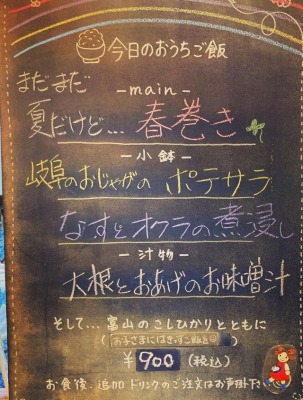 今日のおうちご飯
まだまだ
-main-
夏だけど… 春巻き
-小鉢-
岐阜のおじゃがの ポテサラ
なすとオクラの煮浸し
-汁物-
大根とおあげのお味噌汁
そして… 富山のこしひかりとともに
¥900(税込)
お食後、追加ドリンクのご注文はお声掛け下さい